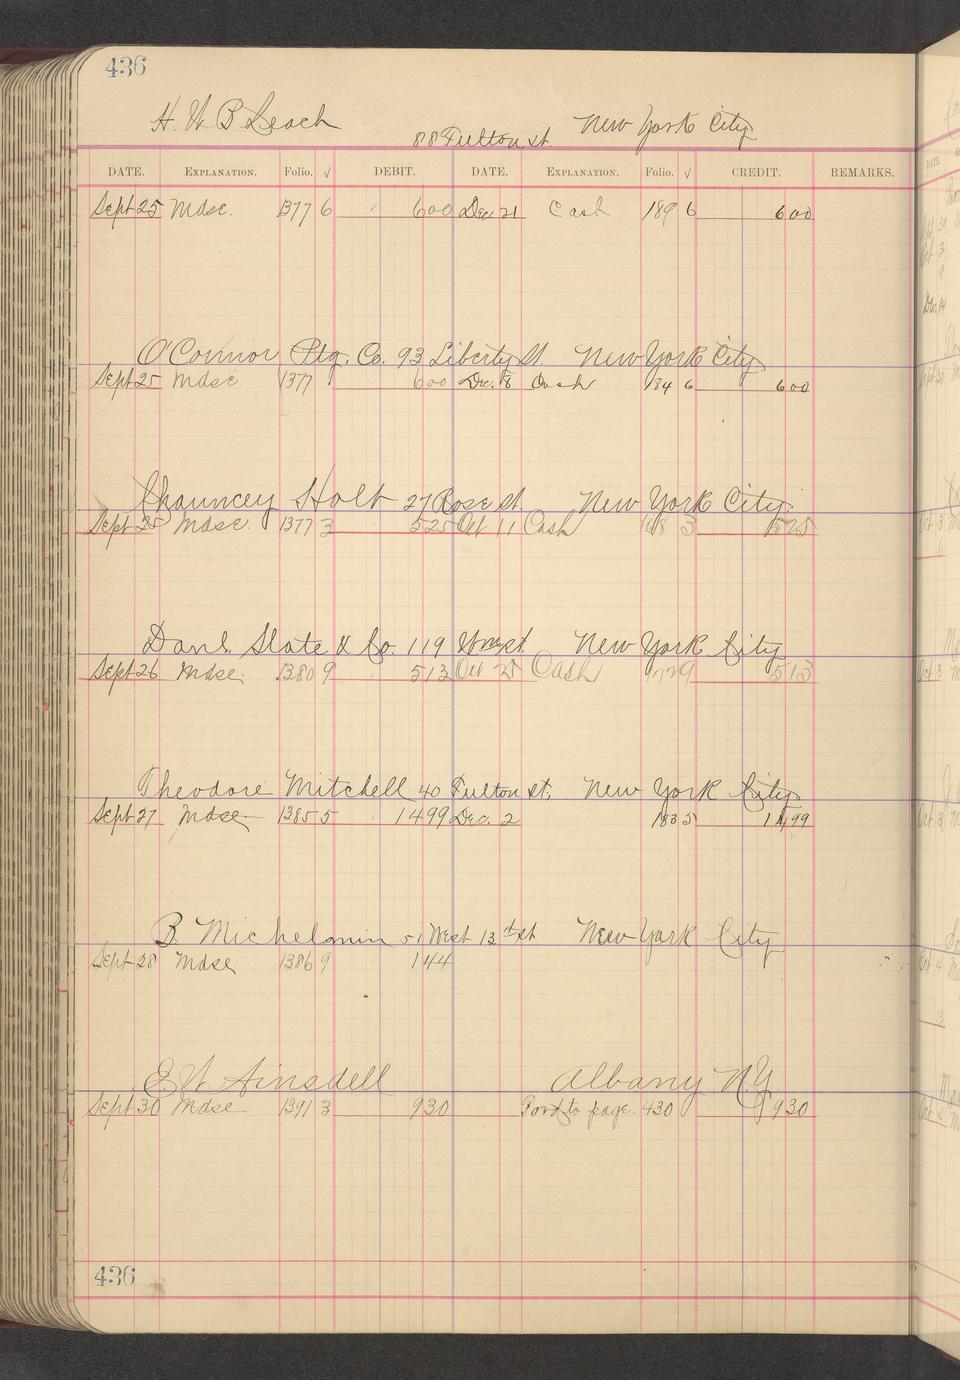 436
H. W. B Leach 88 Fulton st New York City
DATE. EXPLANATION. Folio. √ DEBIT. DATE. EXPLANATION. Folio. √ CREDIT. REMARKS.
Sept 25 Mdse. 1377 6 600 Dec 21 Cash 189 6 600
O'Connor Ptg. Co. 93 Liberty St. New York City
Sept 25 Mdse 1377 600 Dec. 18 Cash 184 6 600
Chauncey Holt 27 Rose st. New York City
Sept 25 Mdse. 1377 3 525 Oct 11 Cash 168 3 525
Danl. Slate & Co. 119 Wm st. New York City
Sept 26 Mdse. 1380 9 513 Oct 25 Cash 9 513
Theodore Mitchell 40 Fulton st. New York City
Sept 27 Mdse 1385 5 1499 Dec. 2 183 5 1499
B. Michelmin 51 West 13th st New York City
Sept 28 Mdse 1386 9 144
E. W. Ainsdell Albany N.Y.
Sept 30 Mdse 1391 3 930 Ford to page. 430 930
436